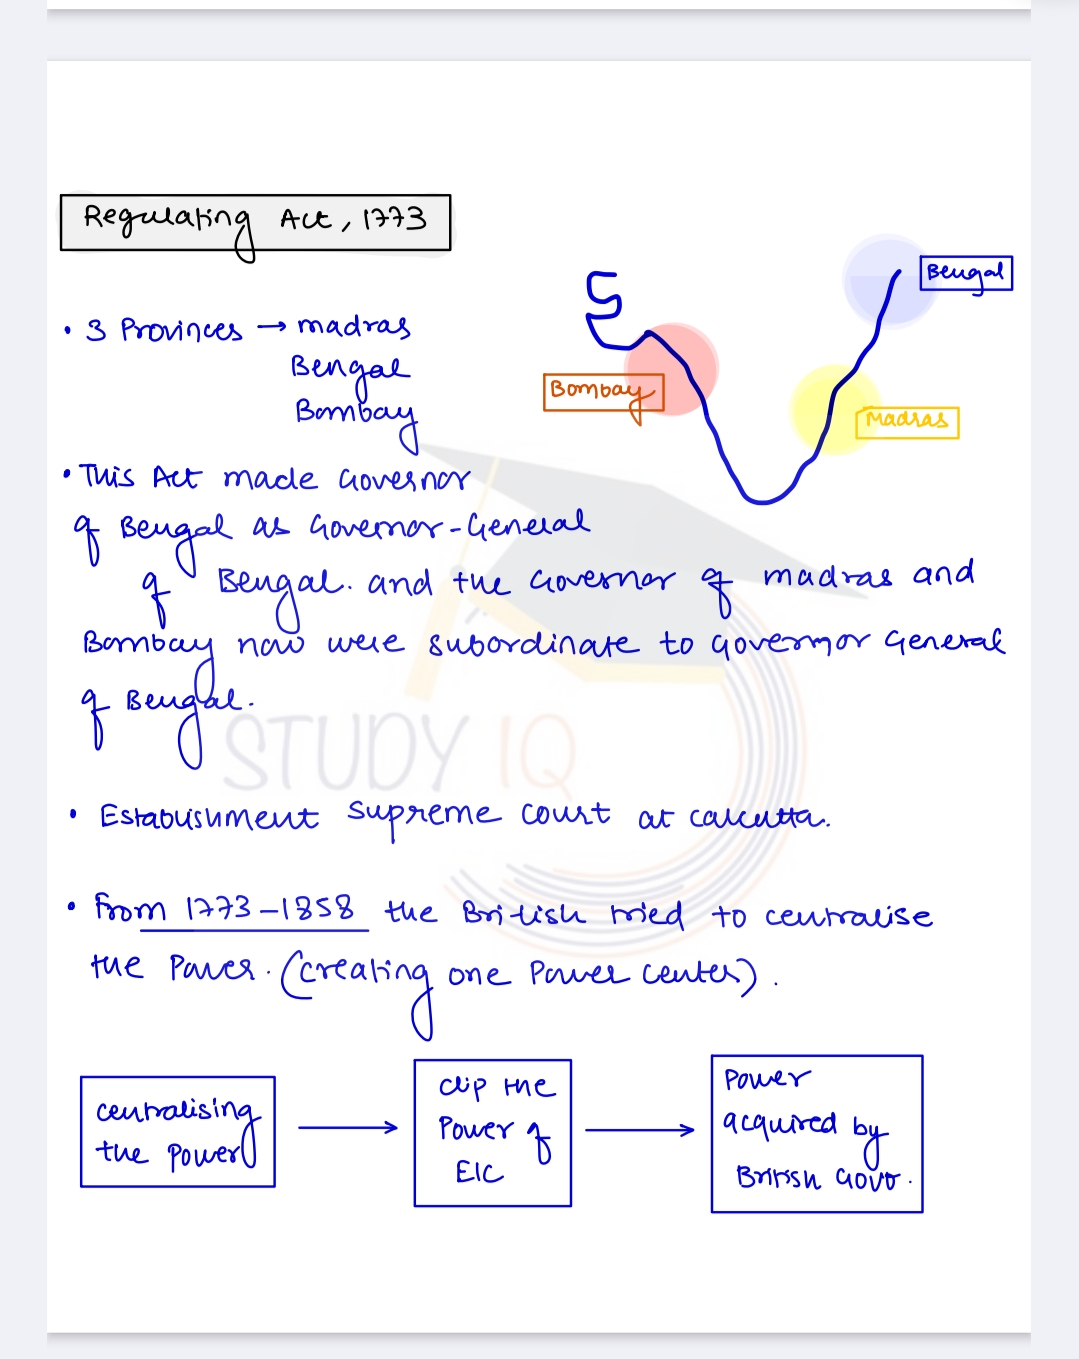 Regulating Act, 1773
Bengal
Bombay
Madras
• 3 Provinces → madras
Bengal
Bombay
• This Act made Governor
of Bengal as Governor-General
of Bengal. and the Governor of madras and
Bombay now were subordinate to Governor General
of Bengal.
STUDY IQ
• Establishment Supreme court at calcutta.
• From 1773-1858 the British tried to centralise
the Power. (creating one Power center).
centralising
the Power
clip the
Power of
EIC
Power
acquired by
British Govt.